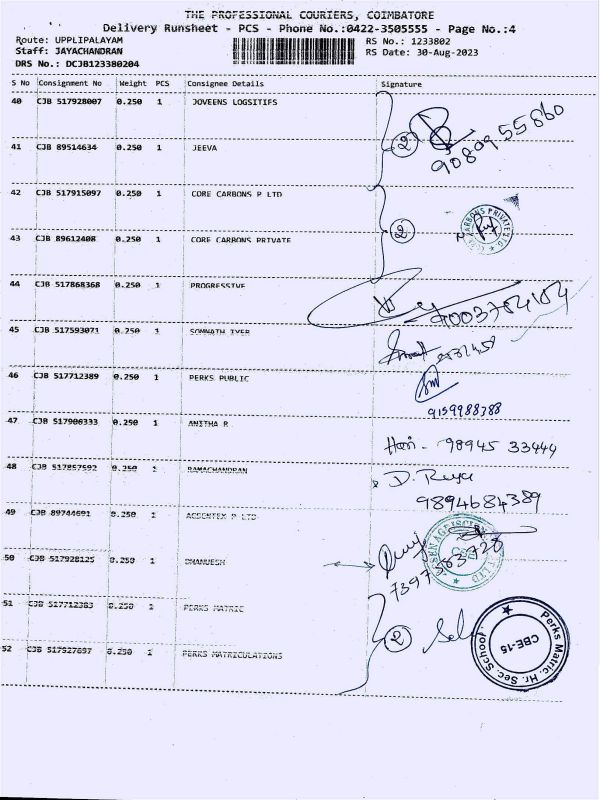 THE PROFESSIONAL COURIERS, COIMBATORE
Delivery Runsheet - PCS - Phone No.:0422-3505555 - Page No.:4
Route: UPPLIPALAYAM
RS No.: 1233802
Staff: JAYACHANDRAN
RS Date: 30-Aug-2023
DRS No.: DCJB123380204
S No Consignment No Weight PCS Consignee Details Signature
40 CJB 517928007 0.250 1 JOVEENS LOGSITIFS
2 9080955860
41 CJB 89514634 0.250 1 JEEVA
42 CJB 517915097 0.250 1 CORE CARBONS P LTD
2
43 CJB 89612408 0.250 1 CORE CARBONS PRIVATE
44 CJB 517868368 0.250 1 PROGRESSIVE
45 CJB 517593071 0.250 1 SOMNATH IYER
46 CJB 517712389 0.250 1 PERKS PUBLIC
9159988388
47 CJB 517906333 0.250 1 ANITHA R
Hari - 98945 33444
48 CJB 517857592 0.250 1 RAMACHANDRAN
9894684389
49 CJB 89744691 0.250 1 P LTD
50 CJB 517928125 0.250 1
51 CJB 517712383 0.250 1 PERKS MATRIC
2
52 CJB 517927697 0.250 1 PERKS MATRICULATIONS
Perks Matric. Hr. Sec. School.
CBE-15